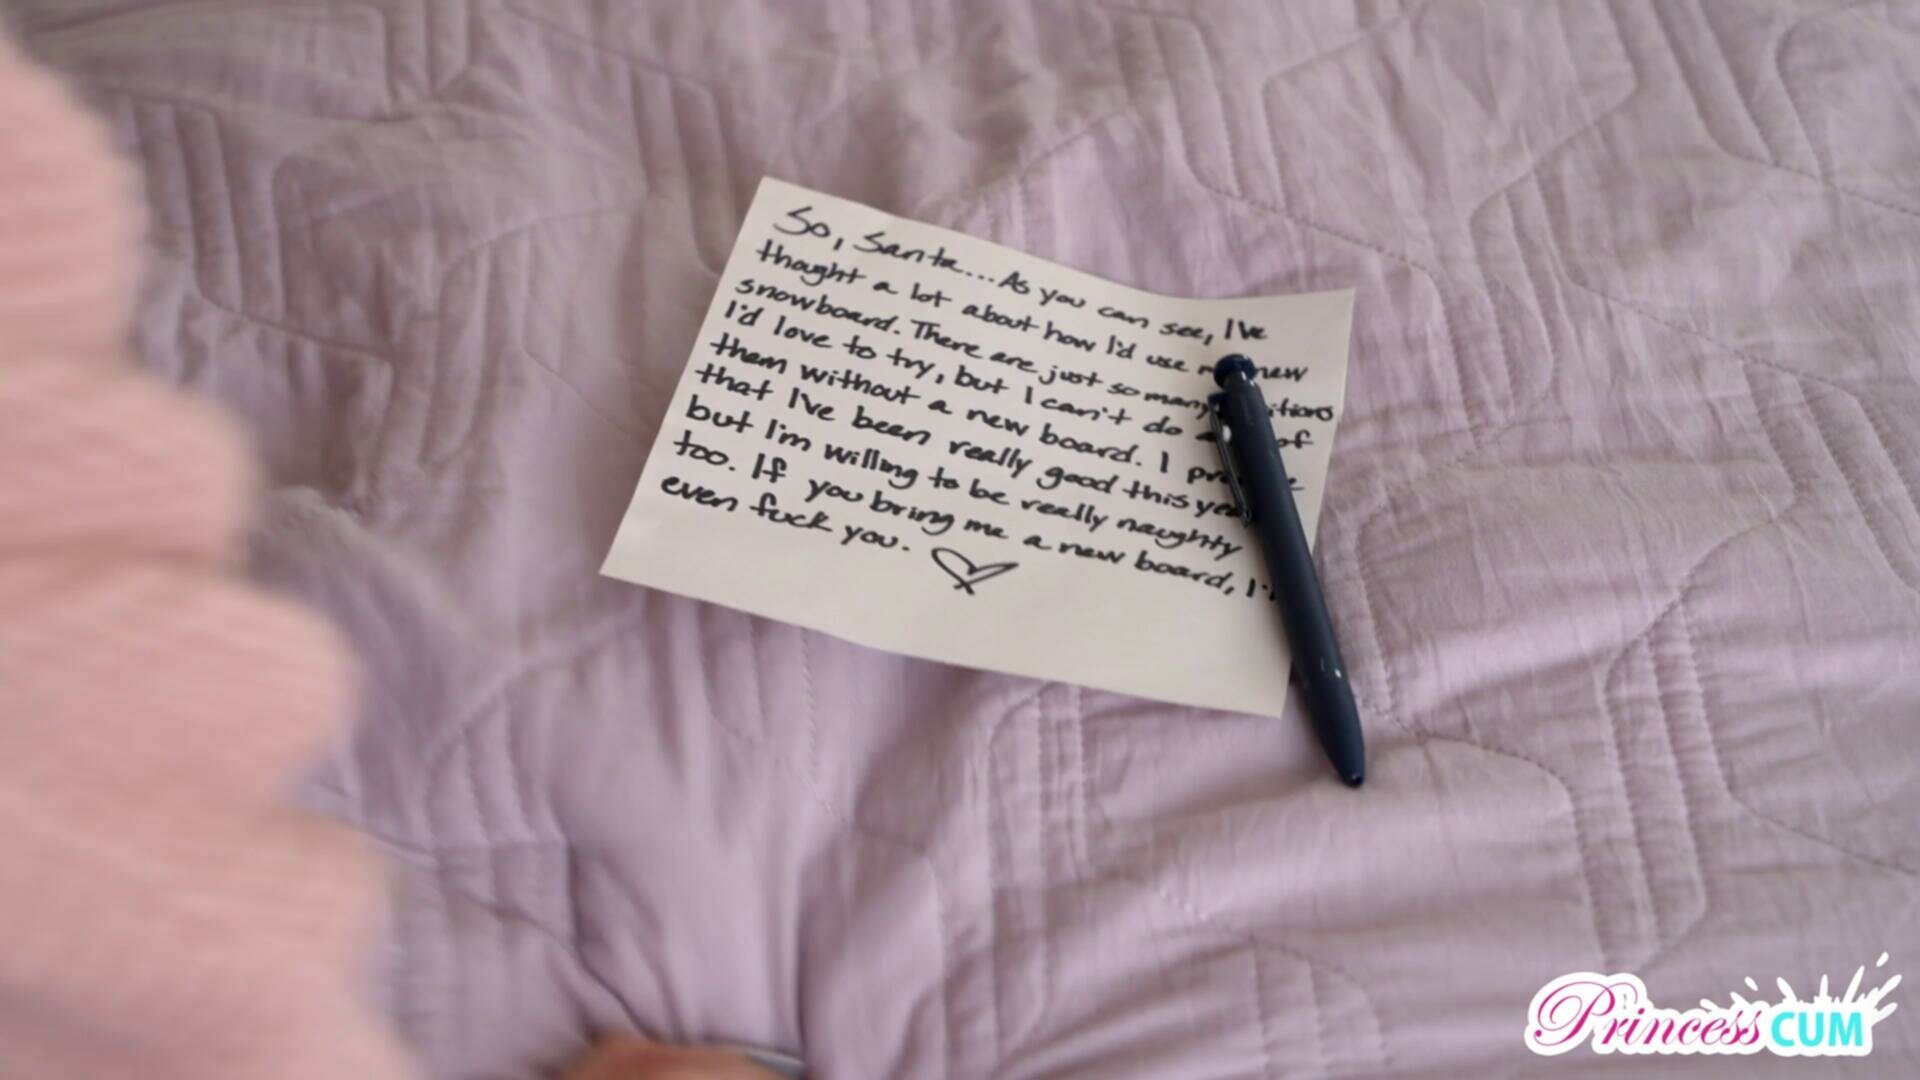 So, Santa... As you can see, I've
thought a lot about how I'd use new
snowboard. There are just so many
I'd love to try, but I can't do of
them without a new board. I
that I've been really good this
but I'm willing to be really naughty
too. If you bring me a new board,
even fuck you.
PrincessCUM